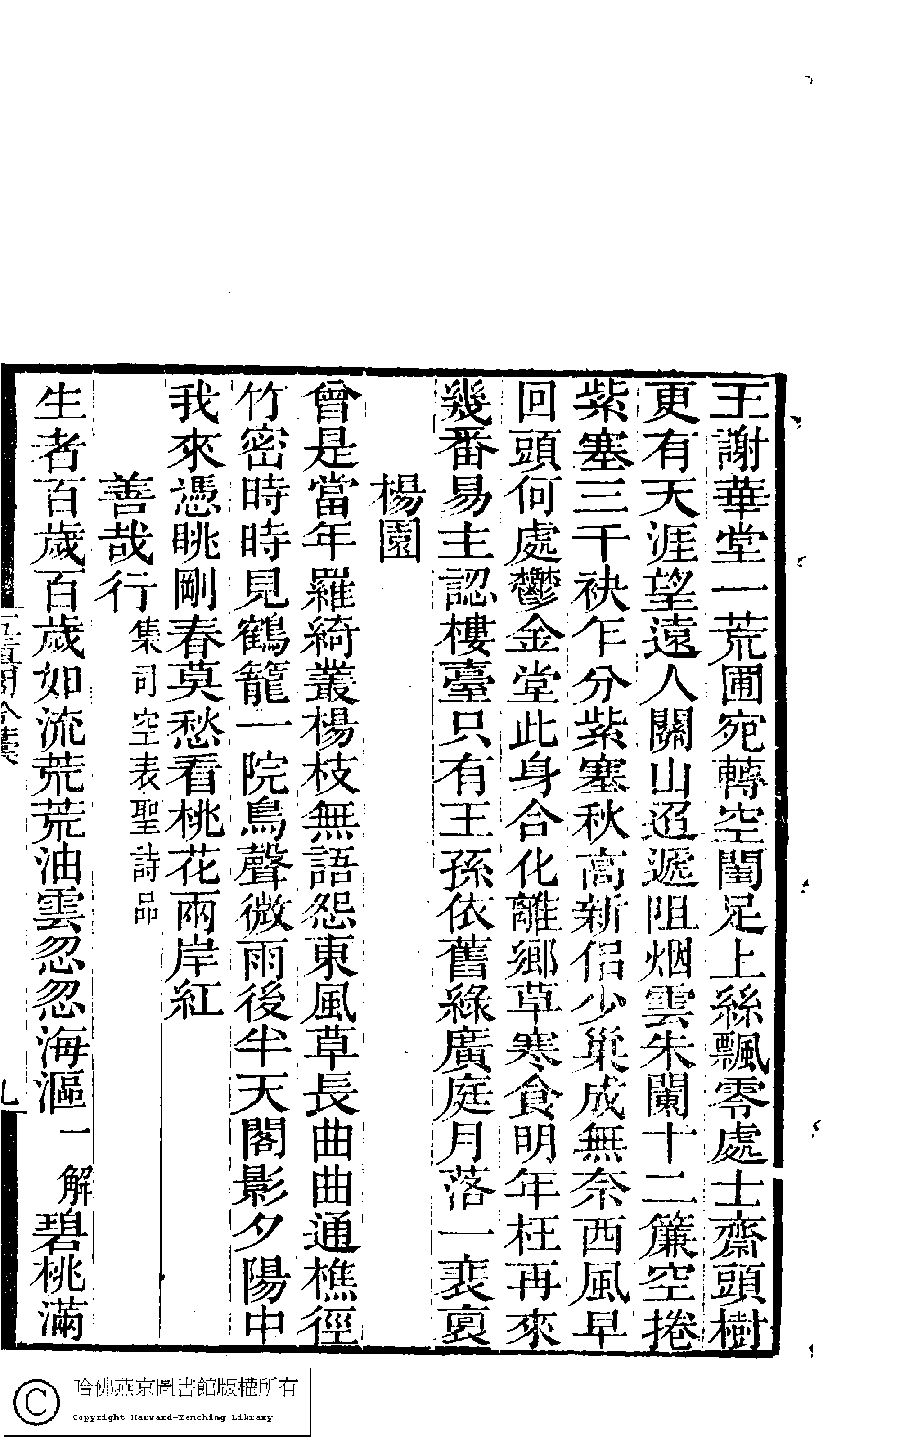 王謝華堂一荒圃宛轉空閨足上絲飄零處士齋頭樹
更有天涯望遠人關山迢遞阻烟雲朱闌十二簾空捲
紫塞三千袂乍分紫塞秋高新侣少巢成無奈西風早
回頭何處鬱金堂此身合化離鄉草寒食明年枉再來
幾番易主認樓臺只有王孫依舊綠廣庭月落一裵裏
楊園
曾是當年羅綺叢楊枝無語怨東風草長曲曲通樵徑
竹密時時見鶴籠一院鳥聲微雨後半天閣影夕陽中
我來憑眺剛春莫愁看桃花兩岸紅
善哉行集司空表聖詩品
生者百歲百歲如流荒荒油雲忽忽海漚一解碧桃滿
九
哈佛燕京圖書館版權所有
Copyright Harvard-Yenching Library